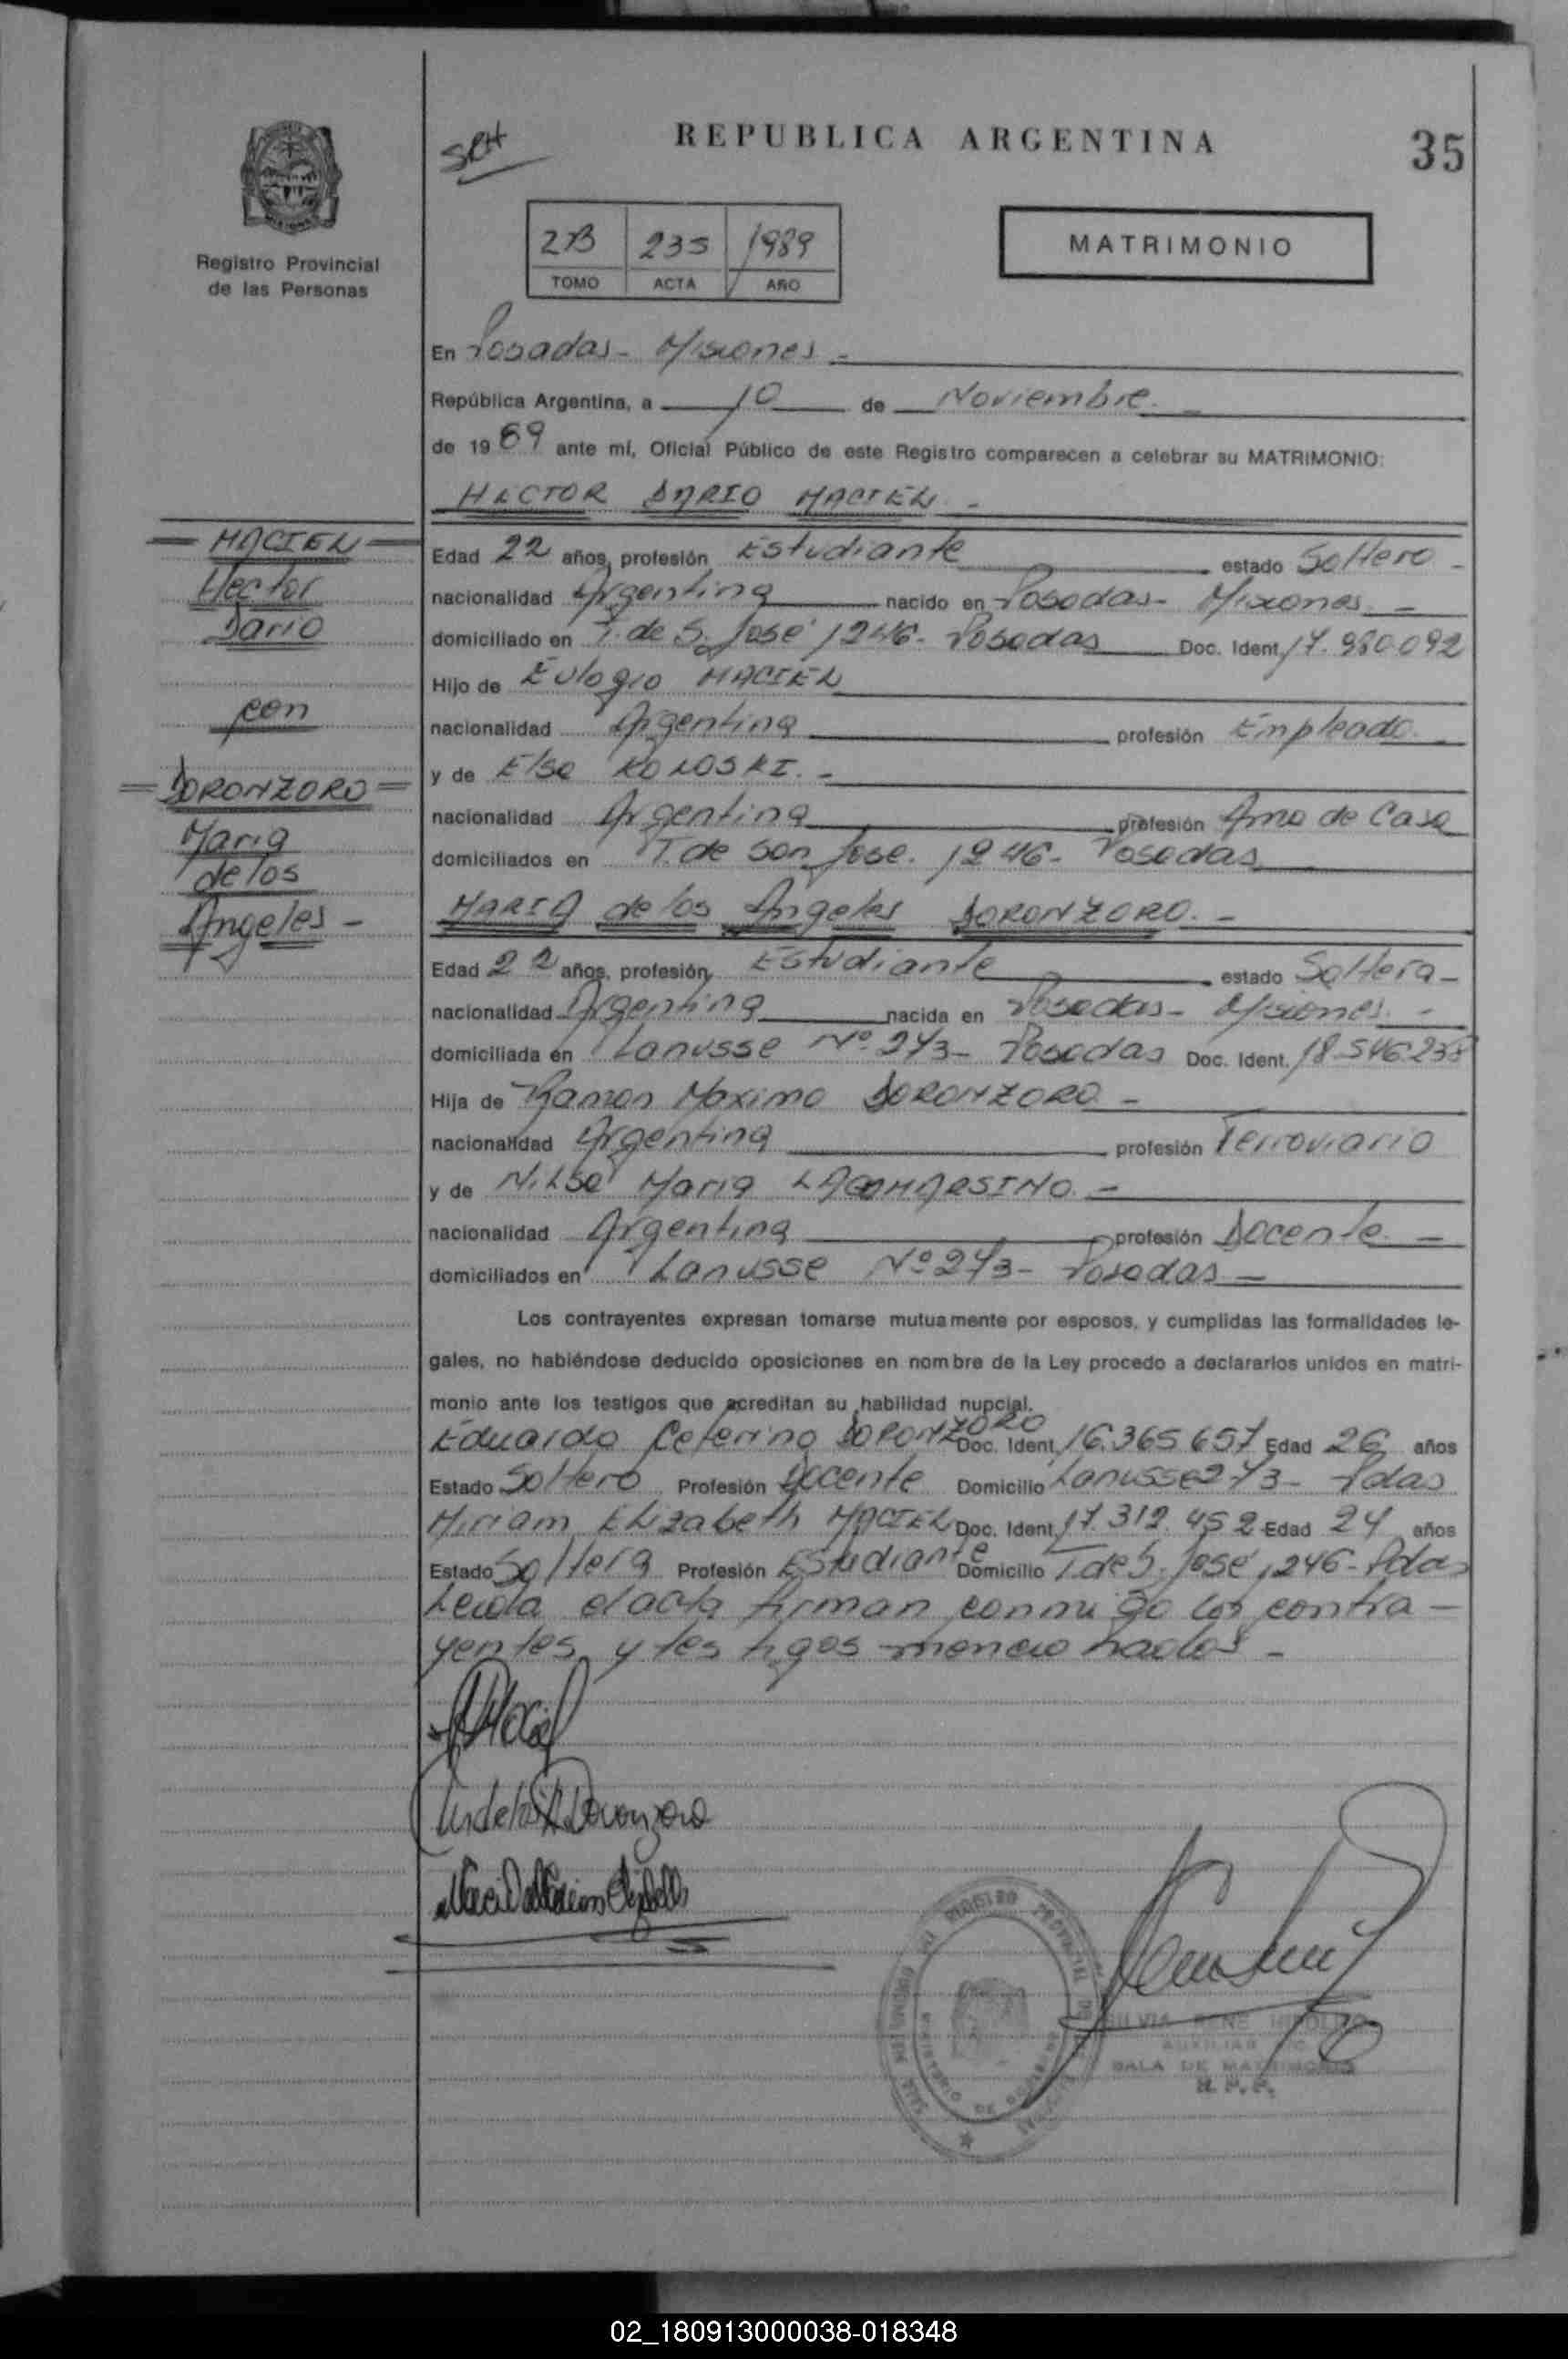 REPUBLICA ARGENTINA
35
Registro Provincial
de las Personas
2B 235 1989
TOMO ACTA AÑO
MATRIMONIO
En Posadas - Misiones -
República Argentina, a 10 de Noviembre.
de 1989 ante mí, Oficial Público de este Registro comparecen a celebrar su MATRIMONIO:
HECTOR DARIO MACIEL -
MACIEL
Hector
Dario
con
DORONZORO
Maria
de los
Angeles -
Edad 22 años, profesión Estudiante estado Soltero -
nacionalidad Argentina nacido en Posadas - Misiones. -
domiciliado en T. de S. José 1246 - Posadas Doc. Ident. 17.980.092
Hijo de Eulogio MACIEL
nacionalidad Argentina profesión Empleado.
y de Elsa KOLOSKI. -
nacionalidad Argentina profesión Ama de Casa
domiciliados en T. de San Jose. 1246 - Posadas
MARIA de los Angeles DORONZORO. -
Edad 22 años, profesión Estudiante estado Soltera -
nacionalidad Argentina nacida en Posadas - Misiones. -
domiciliada en Lanusse Nº 273 - Posadas Doc. Ident. 18.546.238
Hija de Ramon Maximo DORONZORO -
nacionalidad Argentina profesión Ferroviario
y de Nilsa Maria LACOMARSINO. -
nacionalidad Argentina profesión Docente -
domiciliados en Lanusse Nº 273 - Posadas -
Los contrayentes expresan tomarse mutuamente por esposos, y cumplidas las formalidades le-
gales, no habiéndose deducido oposiciones en nombre de la Ley procedo a declararlos unidos en matri-
monio ante los testigos que acreditan su habilidad nupcial.
Eduardo Ceferino DORONZORO Doc. Ident. 16.365.657 Edad 26 años
Estado Soltero Profesión Docente Domicilio Lanusse 273 - Pdas
Miriam Elizabeth MACIEL Doc. Ident. 17.312.452 Edad 24 años
Estado Soltera Profesión Estudiante Domicilio T. de S. José 1246 - Pdas
Leida el acta firman conmigo los contra-
yentes y testigos mencionados -
SILVIA RENE HIPOLITO
AUXILIAR
SALA DE MATRIMONIOS
R. P. P.
02_180913000038-018348